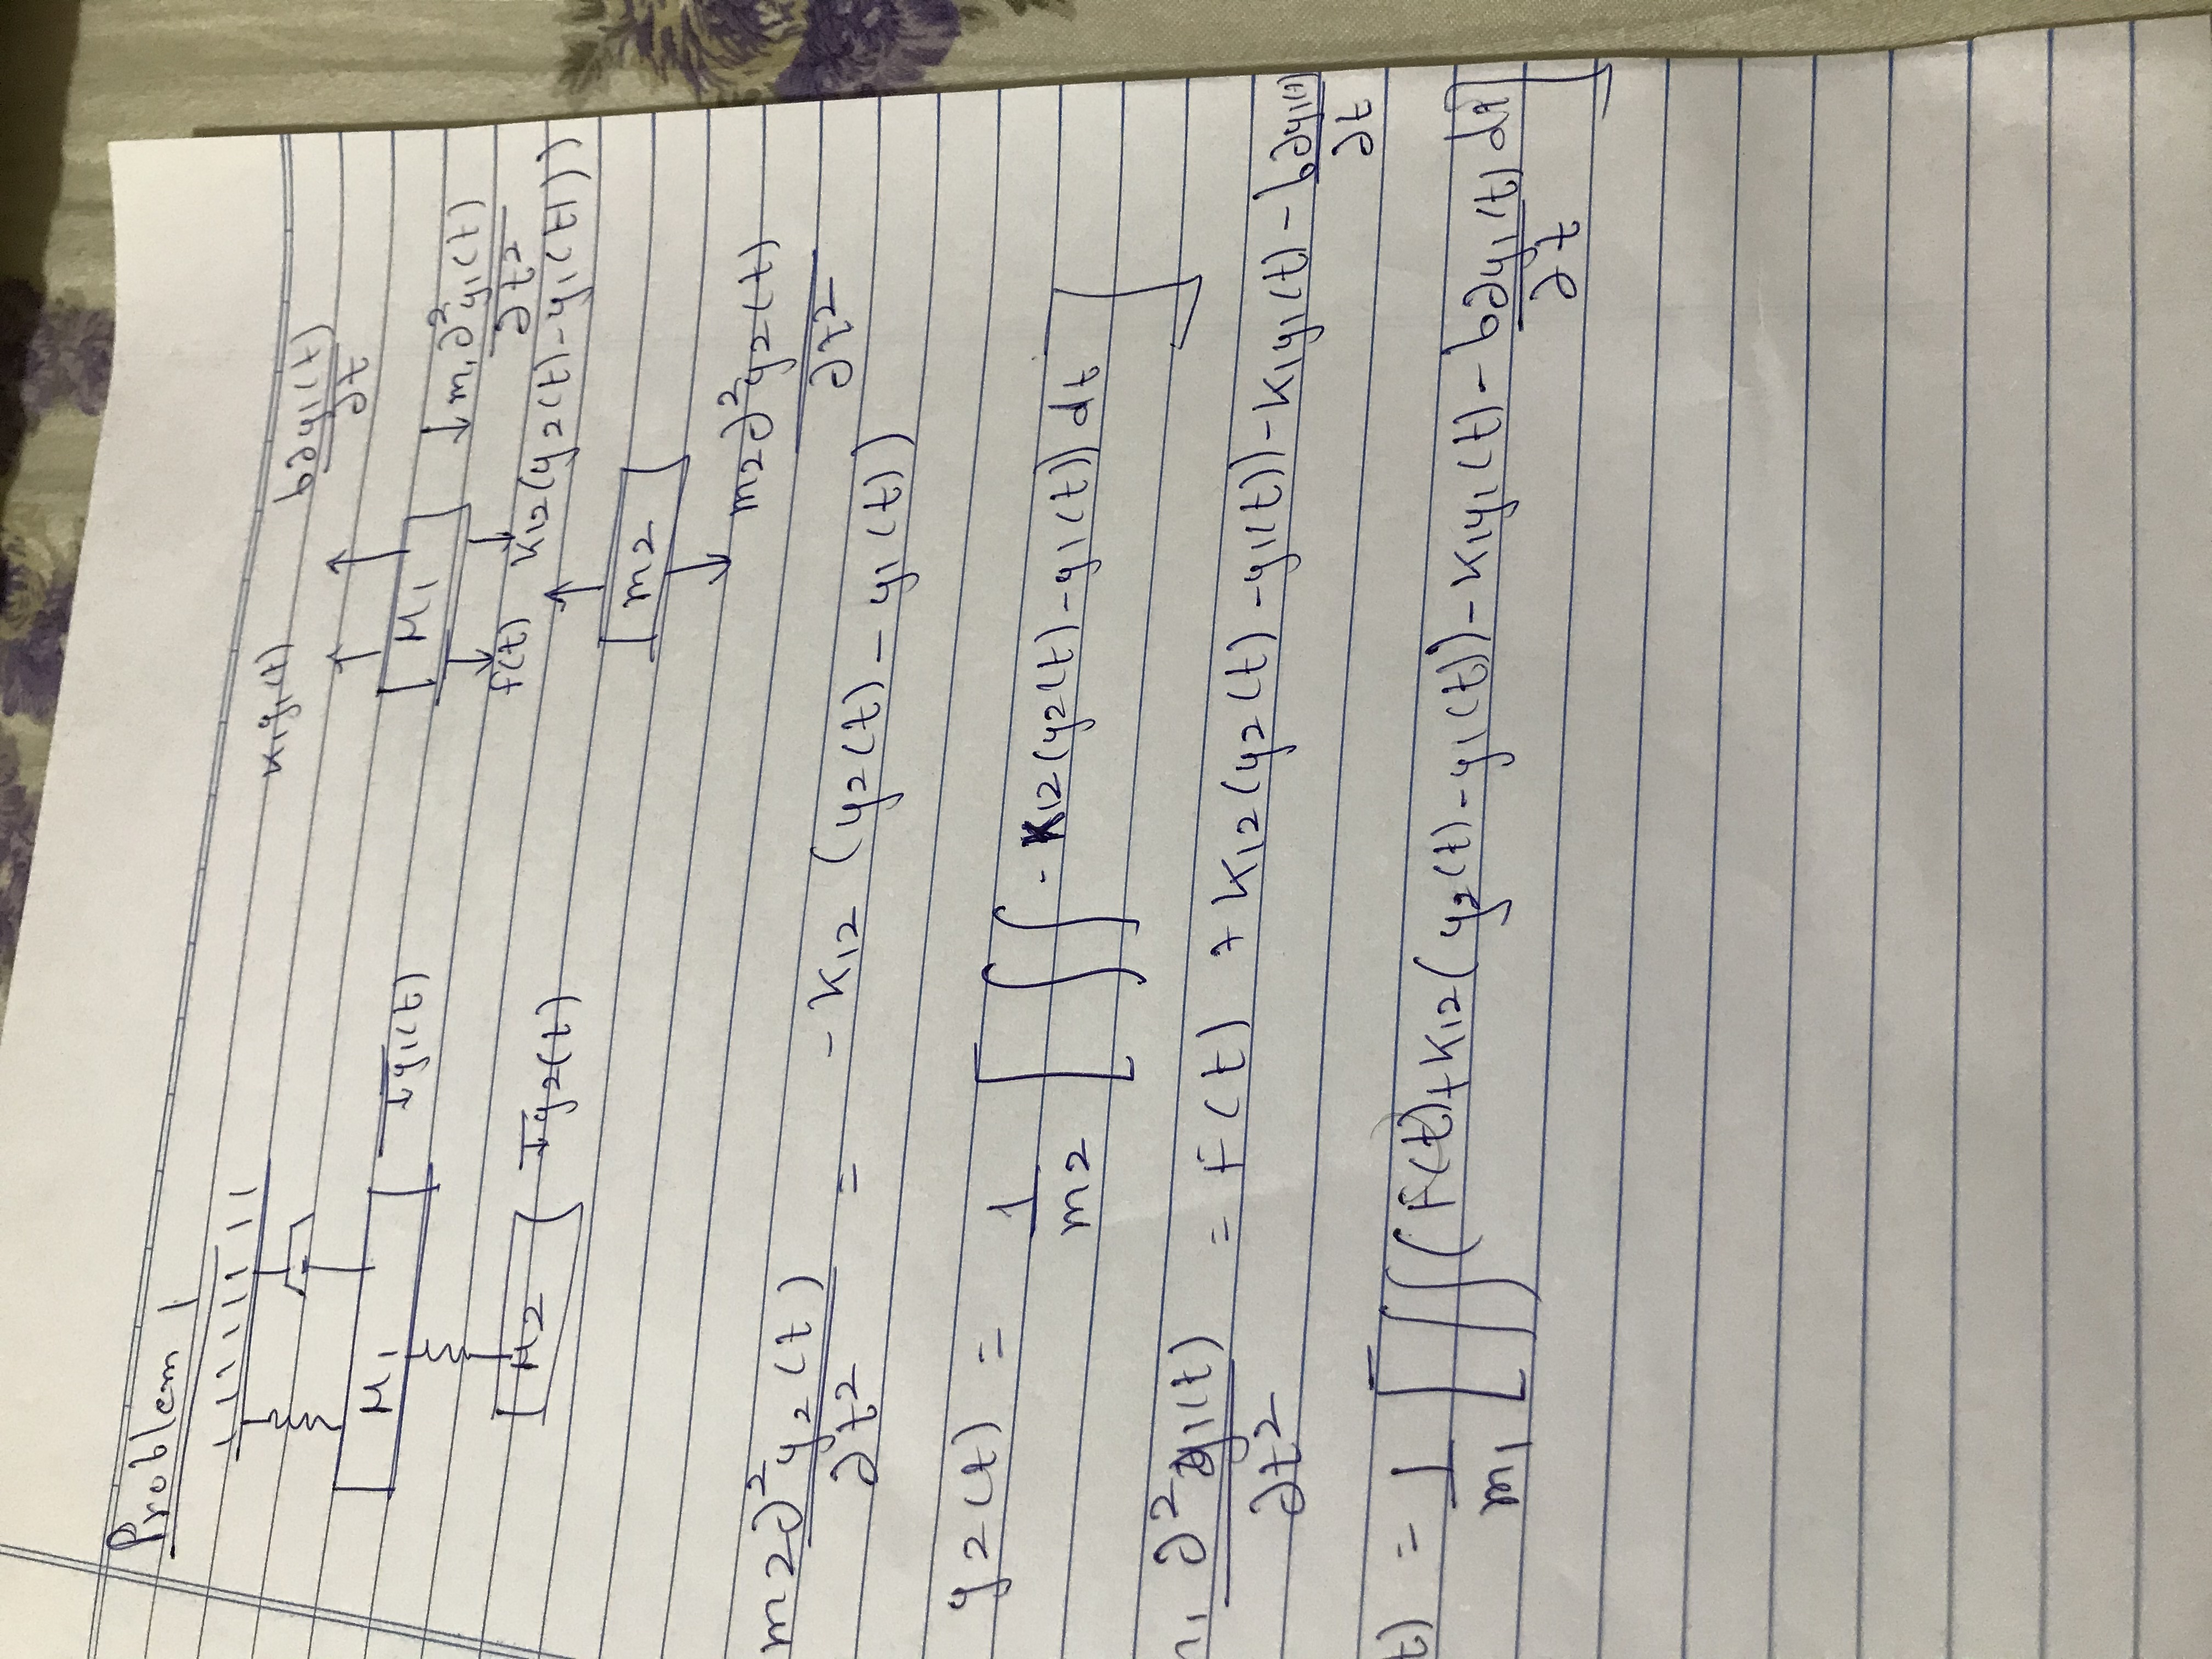 Problem 1
k₁y₁(t)
b∂y₁(t)/∂t
M₁
y₁(t)
M₁
m₁∂²y₁(t)/∂t²
f(t)
k₁₂(y₂(t)-y₁(t))
M2
y2(t)
m2
m2∂²y2(t)/∂t²
m2∂²y₂(t)/∂t² = -K₁₂ (y₂(t) - y₁(t))
y2(t) = 1/m2 [∫∫ -K12(y2(t)-y1(t)) dt]
₁ ∂²y1(t)/∂t² = F(t) + K₁₂(y₂(t) - y1(t)) - K₁y₁(t) - b∂y₁(t)/∂t
t) = 1/m₁ [∫∫(F(t)+K₁₂(y₂(t)-y₁(t))-K₁y₁(t)-b∂y₁(t)/∂t dt]